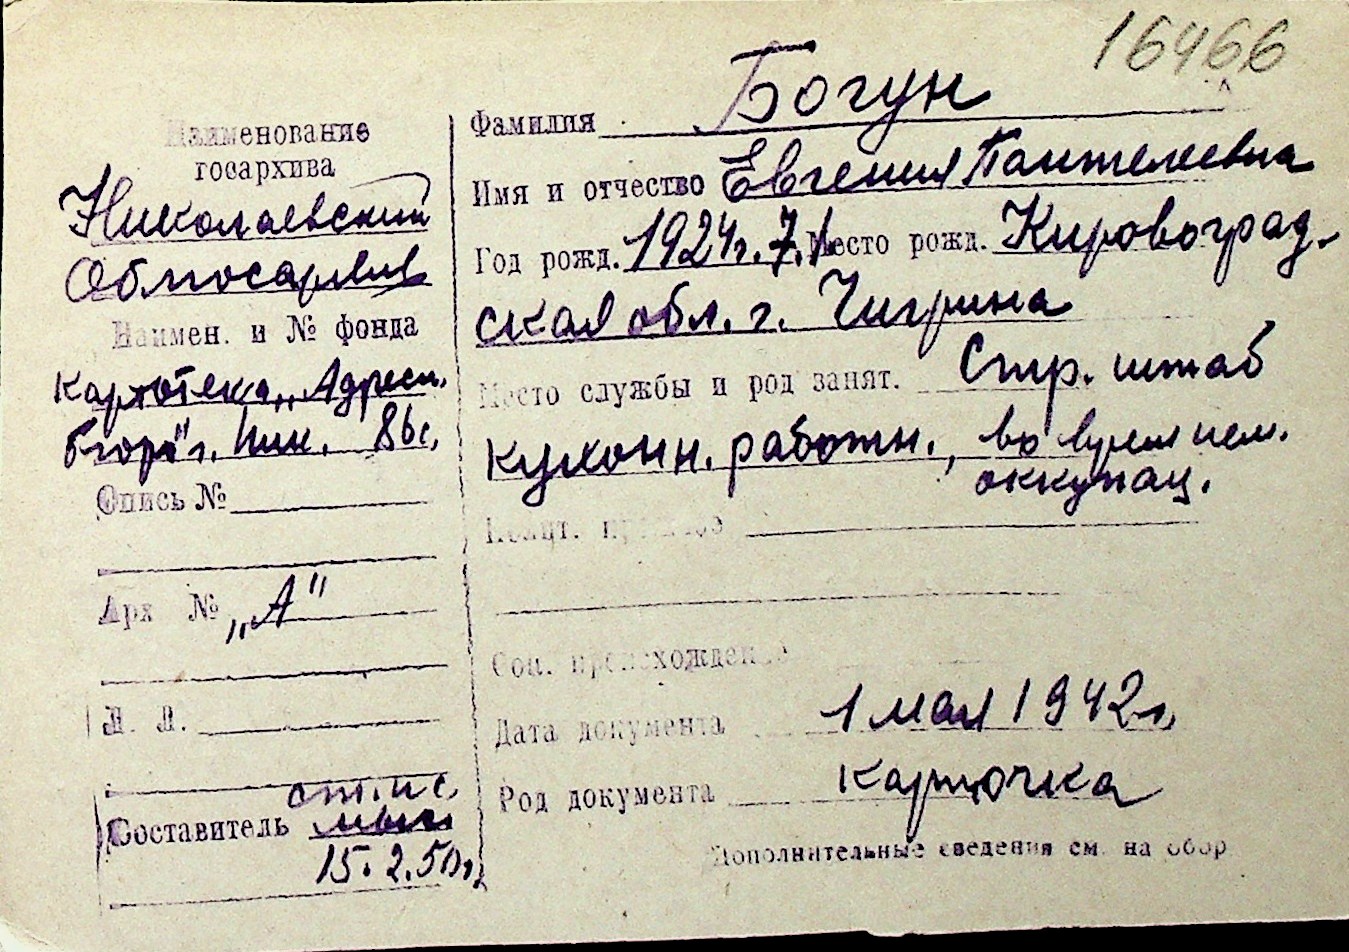 16466
Наименование
госархива
Николаевский
Облгосархив
Наимен. и № фонда
Картотека „Адресн.
бюро" г. Ник.
Опись №
Арх №
„А"
Л. Л.
Составитель
15.2.50г.
Фамилия Богун
Имя и отчество Евгения Пантелеевна
Год рожд. 1924г. 7. Место рожд. Кировоград-
ская обл. г. Чигрина
Место службы и род занят. Стр. штаб
кухонн. работн., во время нем.
оккупац.
Соц. происхождение
Дата документа 1 мая 1942г.
Род документа карточка
Дополнительные сведения см. на обор